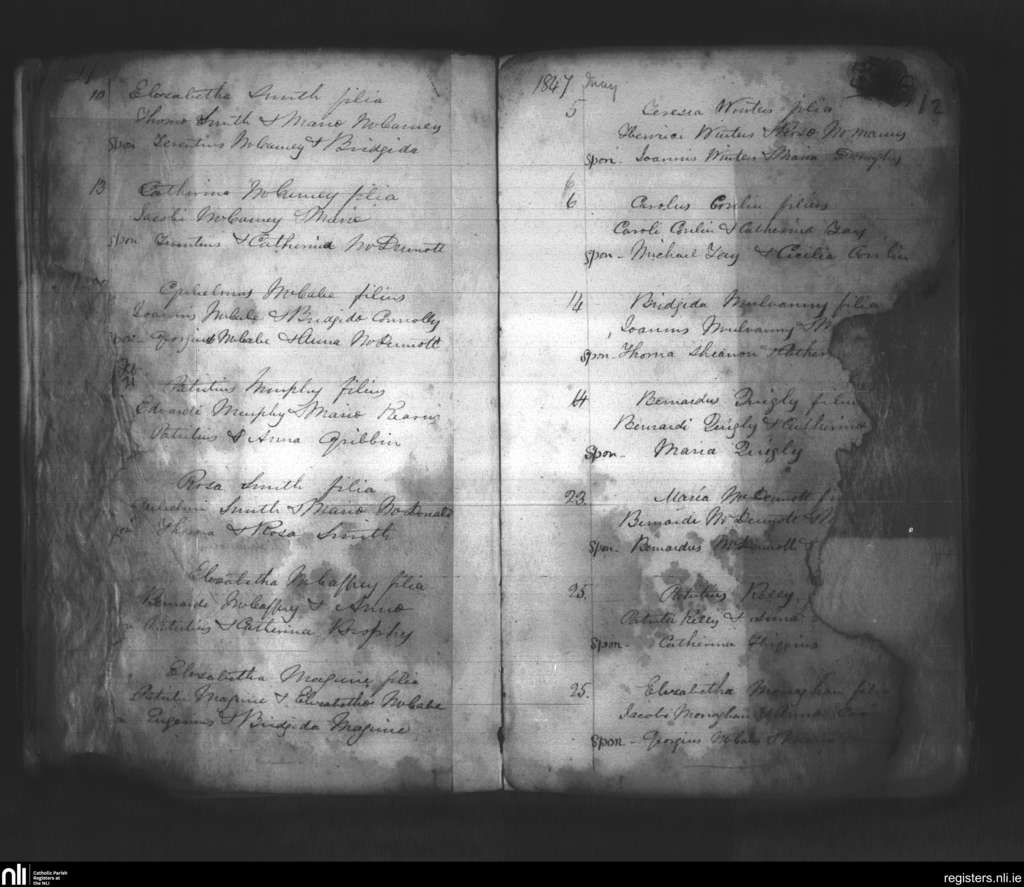 10 Elizabetha Smith filia
Thoma Smith & Maria McCarney
Spon Terentius McCarney & Bridgida
13 Catherina McCarney filia
Jacobi McCarney & Maria
Spon Terentius & Catherina McDermott
Gulielmus McCabe filius
Joannis McCabe & Bridgida Connolly
Spon Georgius McCabe & Anna McDermott
21
Patritius Murphy filius
Edvardi Murphy & Maria
Patritius & Anna Gribbin
Rosa Smith filia
Smith & Maria McDonald
Thoma & Rosa Smith
Elizabetha McCaffrey filia
Bernardi McCaffry & Anna
Patritius & Catherina Brophy
Elizabetha Maguire filia
Patritii Maguire & Elizabetha McCabe
Eugenius & Bridgida Maguire
1847 May
12
5 Teresia Winters filia
Henrici Winters & Rosa
Spon- Joannis Winters & Maria
6
6 Carolus Conlin filius
Caroli Conlin & Catherina
Spon- Michael & Cicilia Conlin
14 Bridgida Mulvanny filia
Joannis Mulvanny & M
Spon- Thoma Sheanon & Cather
14 Bernardus Quigly filius
Bernardi Quigly & Catherina
Spon- Maria Quigly
23. Maria McDermott fi
Bernardi McDermott & M
Spon- Bernardus McDermott &
25. Patritius Kelly
Patritii Kelly & Anna
Spon- Catherina Higgins
25. Elizabetha Monaghan filia
Jacobi Monaghan & Anna
Spon- Georgius McCabe & Maria
nli Catholic Parish
Registers at
the NLI
registers.nli.ie